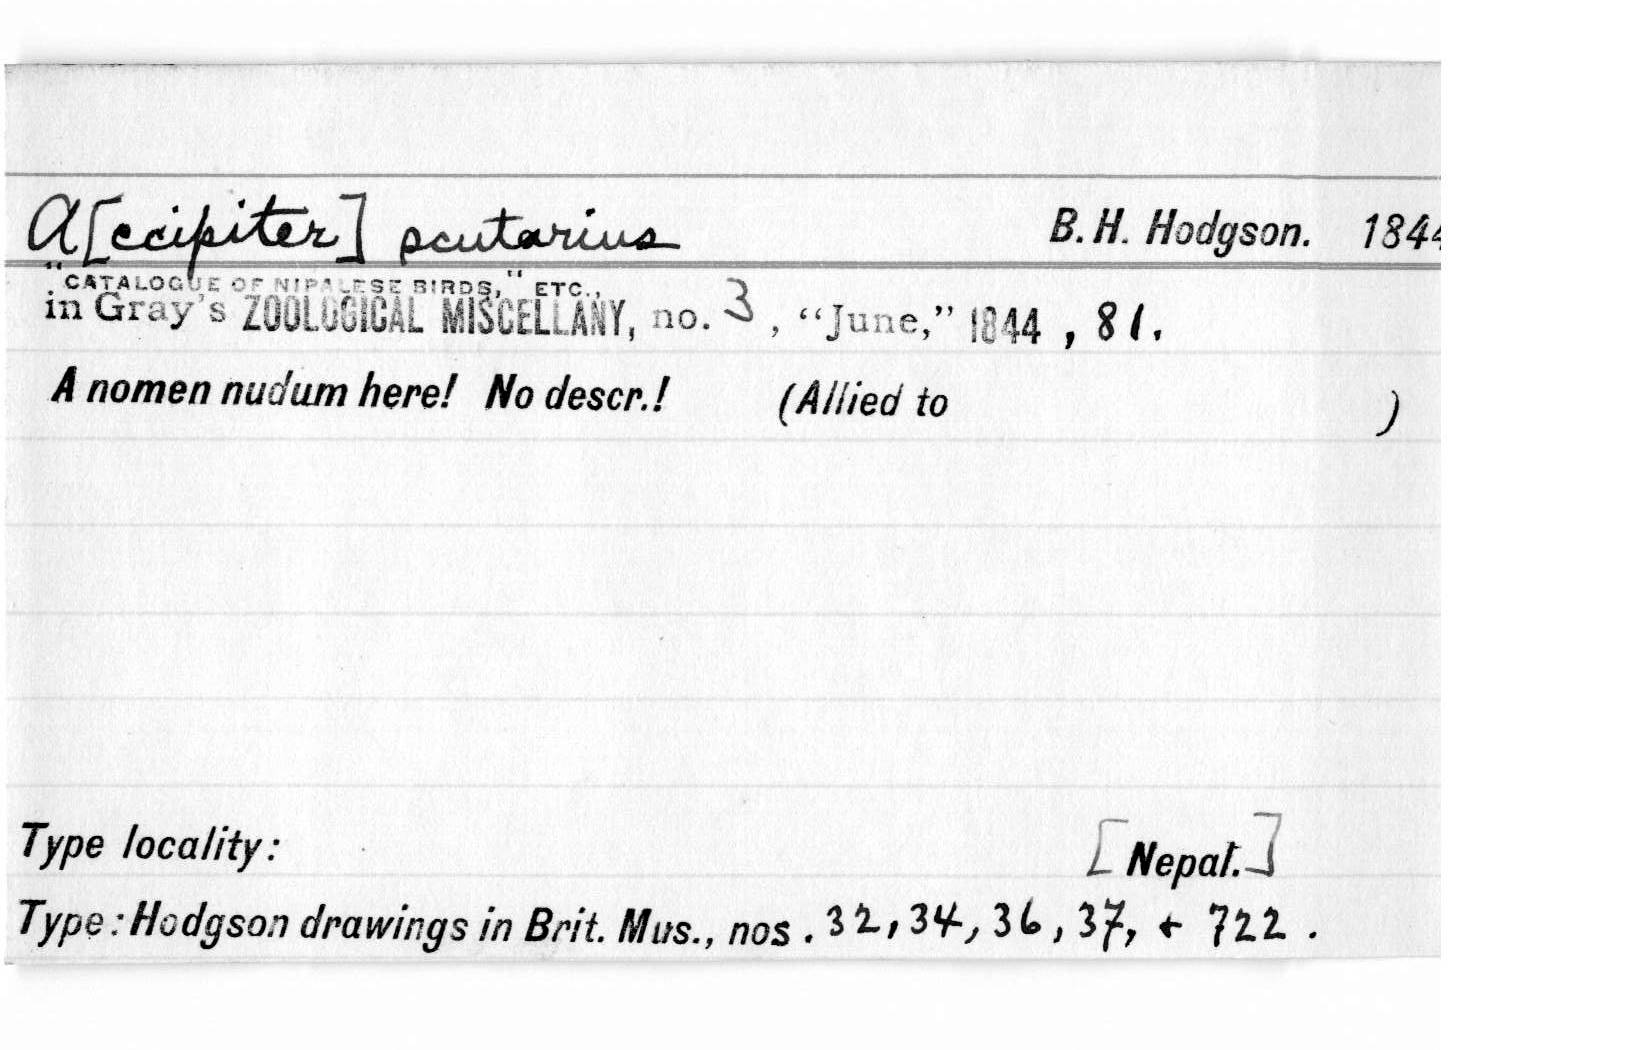 A[ccipiter] scutarius B. H. Hodgson. 1844
"CATALOGUE OF NIPALESE BIRDS," ETC.,
in Gray's ZOOLOGICAL MISCELLANY, no. 3, "June," 1844, 81.
A nomen nudum here! No descr.! (Allied to )
Type locality: [Nepal.]
Type: Hodgson drawings in Brit. Mus., nos. 32, 34, 36, 37, + 722.